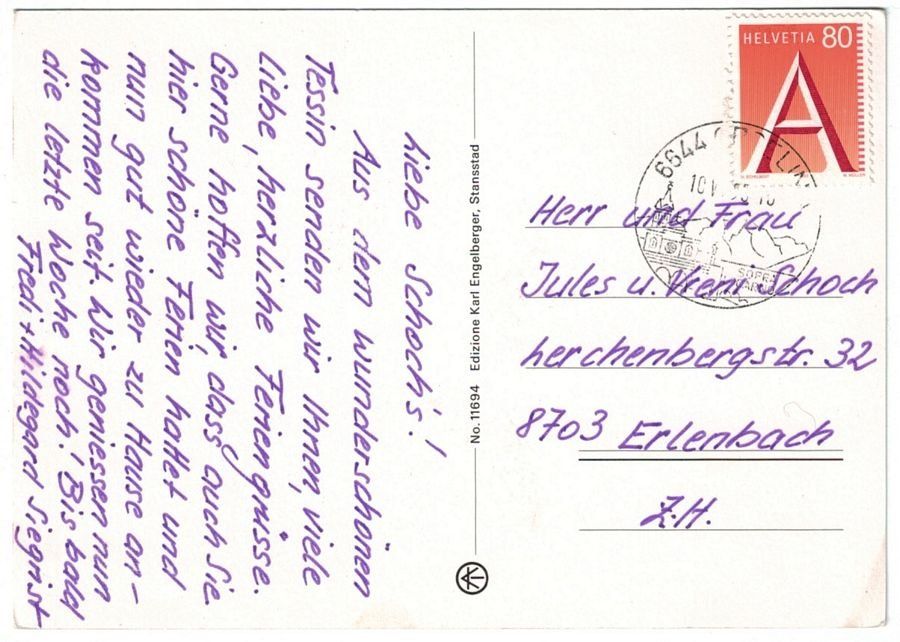 Liebe Schoch's!
Aus dem wunderschönen
Tessin senden wir Ihnen, viele
Liebe, herzliche Feriengrüsse.
Gerne hoffen wir, dass auch Sie
hier schöne Ferien hattet und
nun gut wieder zu Hause an-
kommen seit. Wir geniessen nun
die letzte Woche noch! Bis bald
Fredi + Hildegard Siegrist
No. 11694 Edizione Karl Engelberger, Stansstad
HELVETIA 80
A
6644
Herr und Frau
Jules u. Vreni Schoch
Lerchenbergstr. 32
8703 Erlenbach
Z.H.